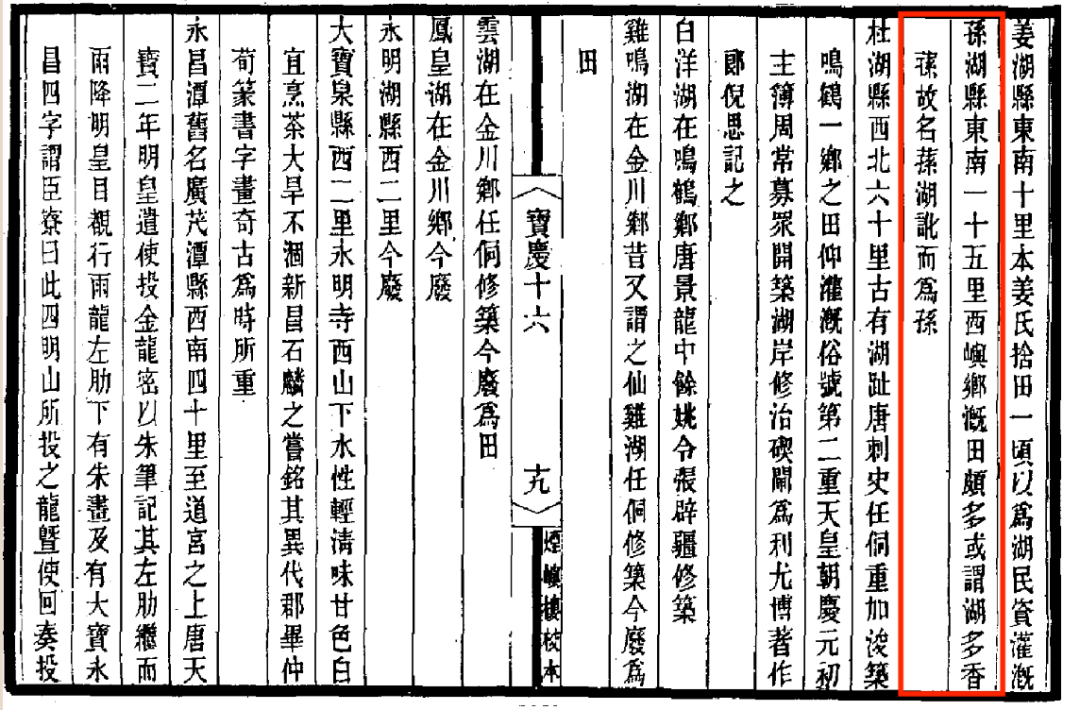 姜湖縣東南十里本姜氏捨田一頃以爲湖民資灌漑
蓀湖縣東南一十五里西嶼鄉漑田頗多或謂湖多香
蓀故名蓀湖訛而爲孫
杜湖縣西北六十里古有湖趾唐刺史任侗重加浚築
鳴鶴一鄉之田仰灌漑俗號第二重天皇朝慶元初
主簿周常募眾開築湖岸修治碶閘爲利尤博著作
郎倪思記之
白洋湖在鳴鶴鄉唐景龍中餘姚令張辟疆修築
雞鳴湖在金川鄉昔又謂之仙雞湖任侗修築今廢爲
田
寶慶十六
十九
煙嶼樓校本
雲湖在金川鄉任侗修築今廢爲田
鳳皇湖在金川鄉今廢
永明湖縣西二里今廢
大寶泉縣西二里永明寺西山下水性輕清味甘色白
宜烹茶大旱不涸新昌石麟之嘗銘其異代郡畢仲
荀篆書字畫奇古爲時所重
永昌潭舊名廣茂潭縣西南四十里至道宮之上唐天
寶二年明皇遣使投金龍密以朱筆記其左肋繼而
雨降明皇目觀行雨龍左肋下有朱畫及有大寶永
昌四字謂臣寮曰此四明山所投之龍曁使回奏投